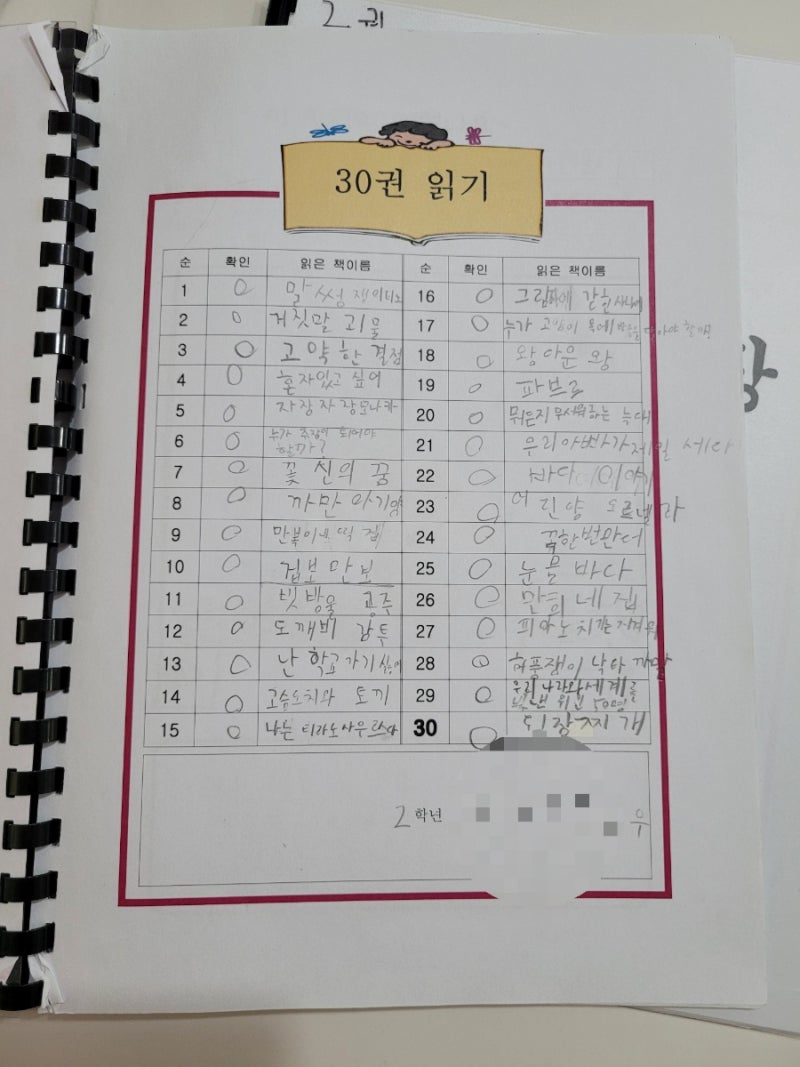 2권
30권 읽기
순 확인 읽은 책이름 순 확인 읽은 책이름
1 ○ 말썽 쟁이 16 ○ 갇힌
2 ○ 거짓말 괴물 17 ○ 누가 고양이 목에 방울을 달아야 할까?
3 ○ 고약한 결점 18 ○ 왕 아운 왕
4 ○ 혼자있고 싶어 19 ○ 파브르
5 ○ 자장 자장 20 ○ 뭐든지 무서워하는 늑대
6 ○ 누가 되어야 21 ○ 우리아빠가 제일 세다
할까?
7 ○ 꽃 신의 꿈 22 ○ 바다 이야기
8 ○ 까만 아기양 23 ○ 어린 양
9 ○ 만복이네 떡 집 24 ○
10 ○ 만보 25 ○ 눈물 바다
11 ○ 빗방울 공주 26 ○ 만희네 집
12 ○ 도깨비 감투 27 ○ 피아노 치기는 지겨워
13 ○ 난 학교가기 싫어 28 ○ 허풍쟁이 낙타
14 ○ 고슴도치와 토끼 29 ○ 우리 나라와 세계를
빛낸 위인 50명
15 ○ 나는 티라노사우르스다 30 ○ 된장찌개
2학년
우